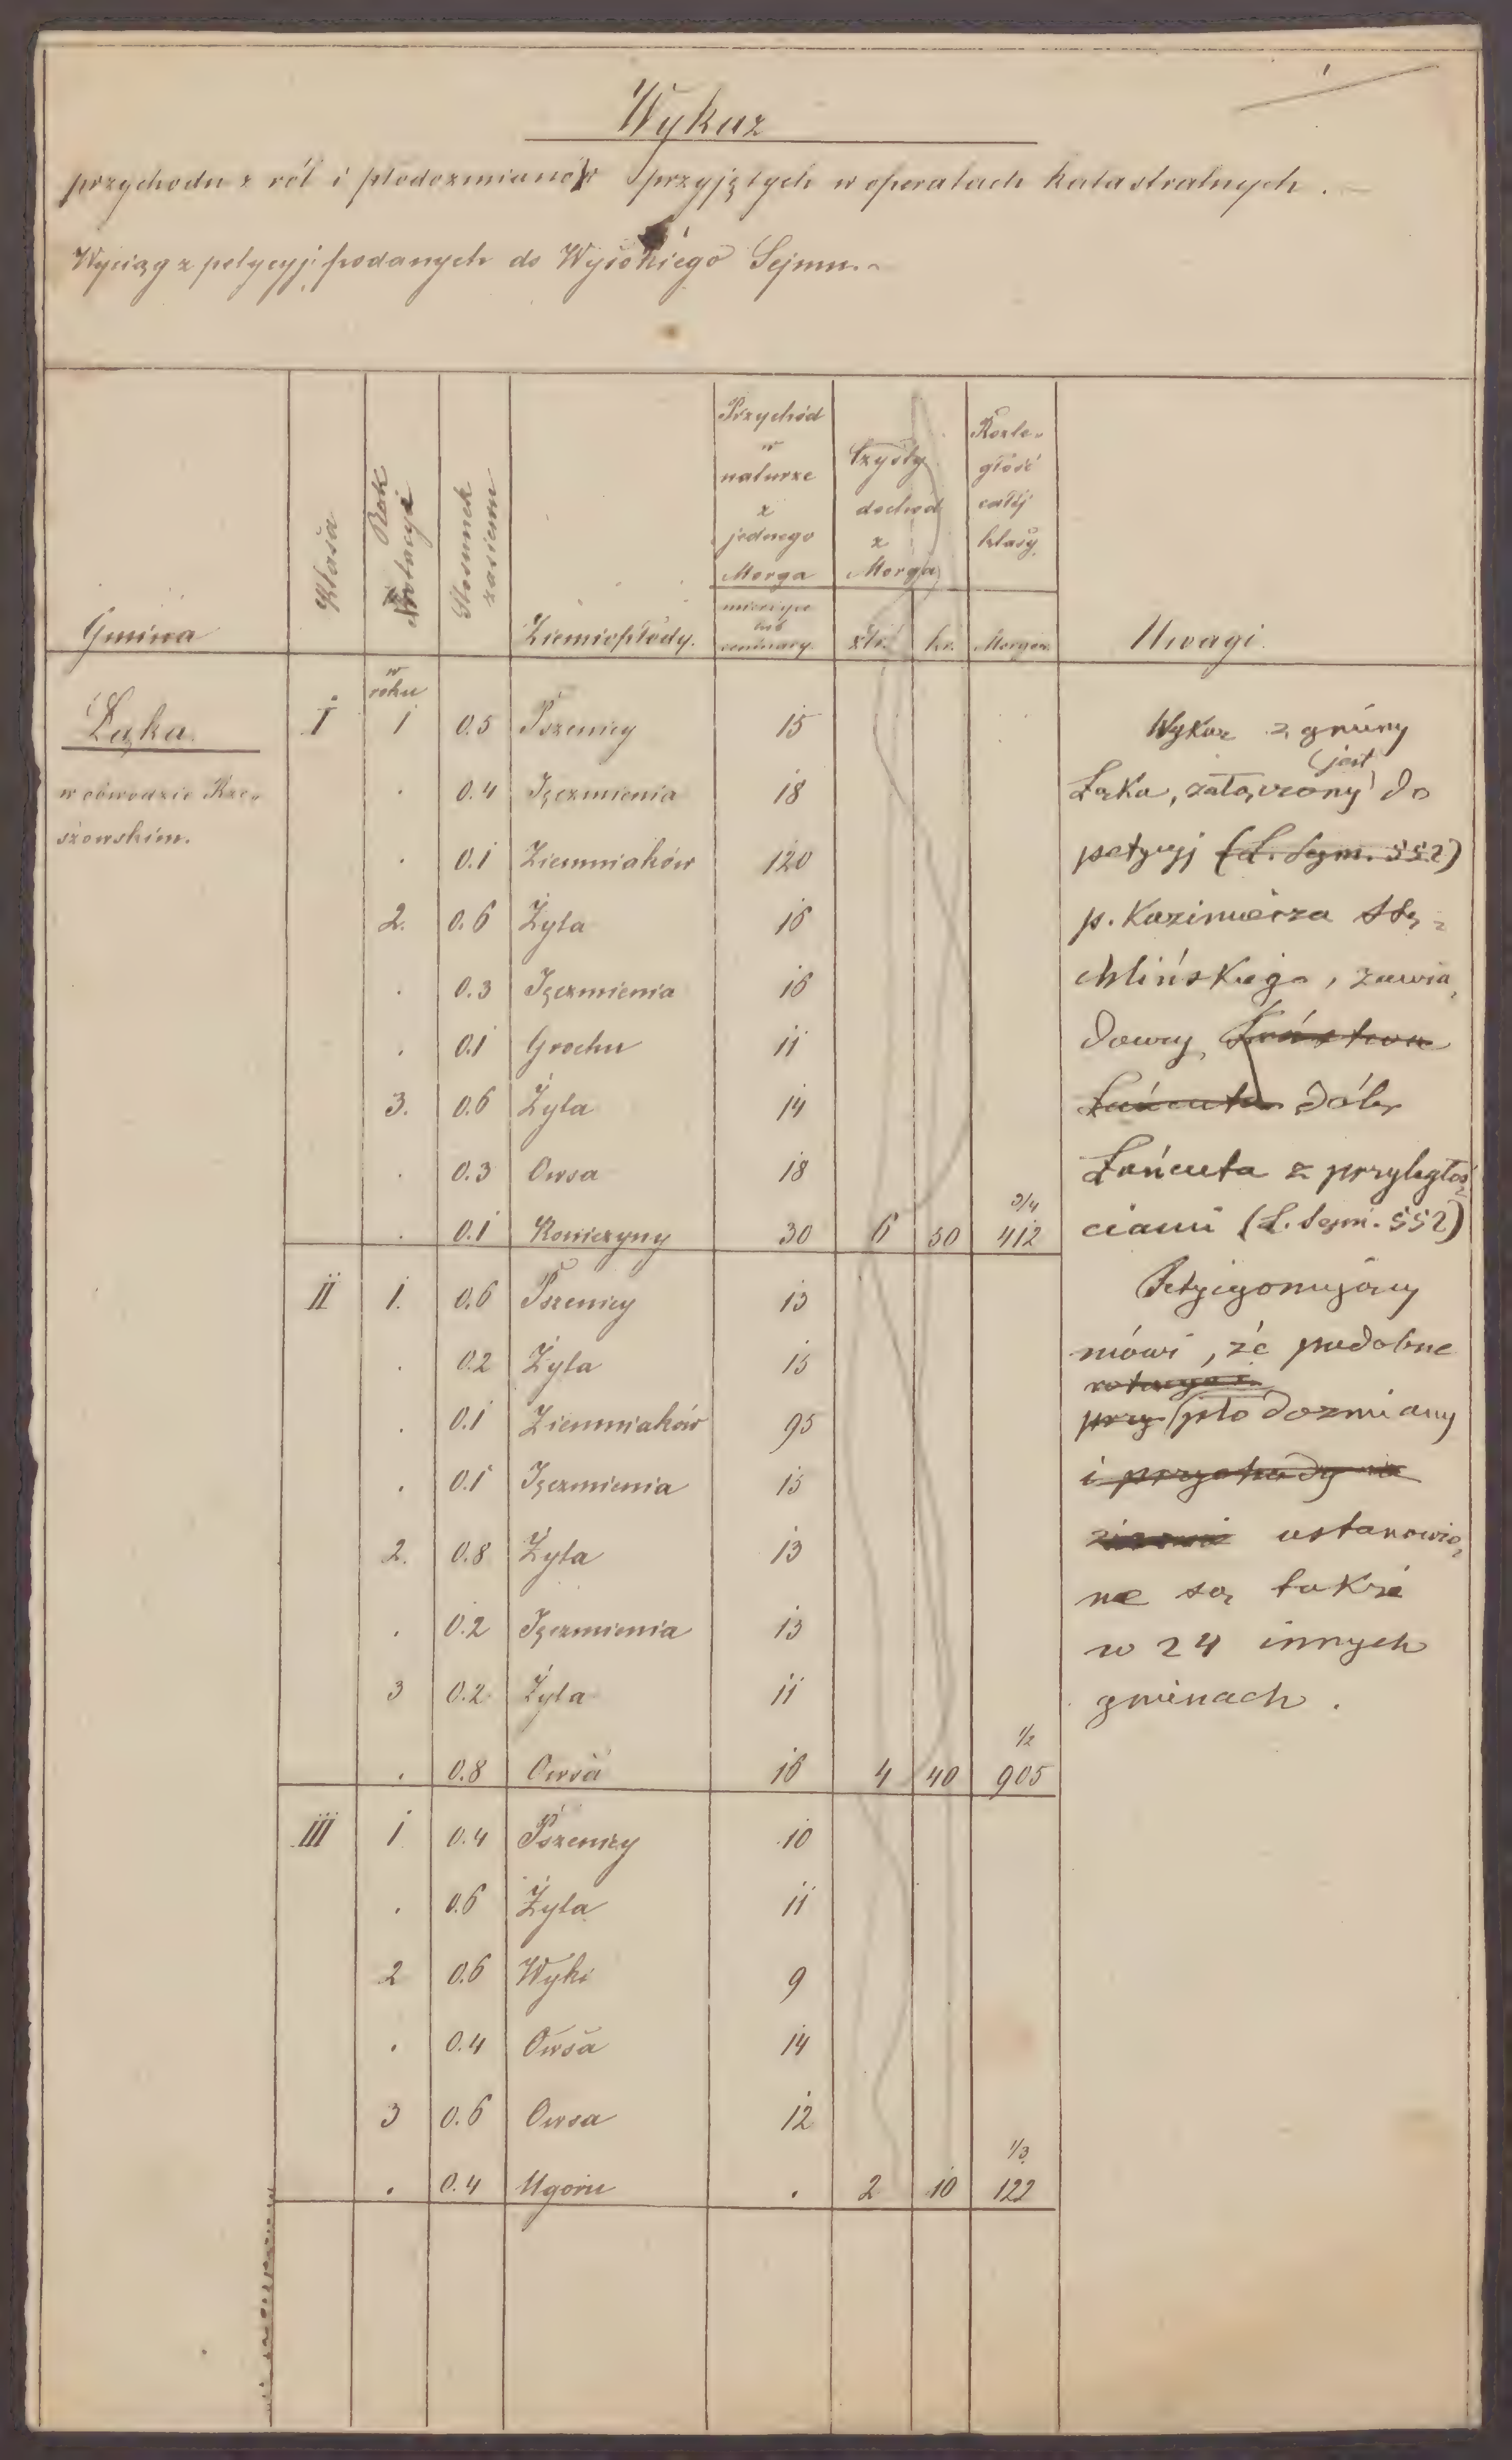 Wykaz
przychodu z ról i płodozmianów przyjętych w operatach katastralnych. —
Wyciąg z petycyj podanych do Wysokiego Sejmu. ~
Gmina | Klasa | Rok Rotacyi | Stosunek zasiewu | Ziemiopłody. | Przychód w naturze z jednego Morga | Czysty dochód z Morga | Rozległość całéj klasy. | Uwagi.
złr. | kr. | Morgów.
w roku
Łąka. | I | 1 | 0.5 | Pszenicy | 15
w obwodzie Rze-
szowskim.
. | 0.4 | Jęczmienia | 18
. | 0.1 | Ziemniaków | 120
2. | 0.6 | Żyta | 16
. | 0.3 | Jęczmienia | 16
. | 0.1 | Grochu | 11
3. | 0.6 | Żyta | 14
. | 0.3 | Owsa | 18
. | 0.1 | Koniczyny | 30 | 6 | 50 | 412 3/4
II | 1. | 0.6 | Pszenicy | 13
. | 0.2 | Żyta | 15
. | 0.1 | Ziemniaków | 95
. | 0.1 | Jęczmienia | 15
2. | 0.8 | Żyta | 13
. | 0.2 | Jęczmienia | 13
3 | 0.2 | Żyta | 11
. | 0.8 | Owsa | 16 | 4 | 40 | 905 1/2
III | 1 | 0.4 | Pszenicy | 10
. | 0.6 | Żyta | 11
2 | 0.6 | Wyki | 9
. | 0.4 | Owsa | 14
3 | 0.6 | Owsa | 12
. | 0.4 | Ugoru | . | 2 | 10 | 122 1/3
Wykaz z gminy
jest
Łąka, załączony do
petycyj (L. Sejm. 552)
p. Kazimierza
zawia-
dowcy Państwa
Łańcuta dóbr
Łańcuta z przyległoś-
ciami (L. Sejm. 552)
Petycyonujący
mówi, że podobne
rotacye i
przy płodozmiany
i przychody w
ustanowio-
ne są także
w 24 innych
gminach.